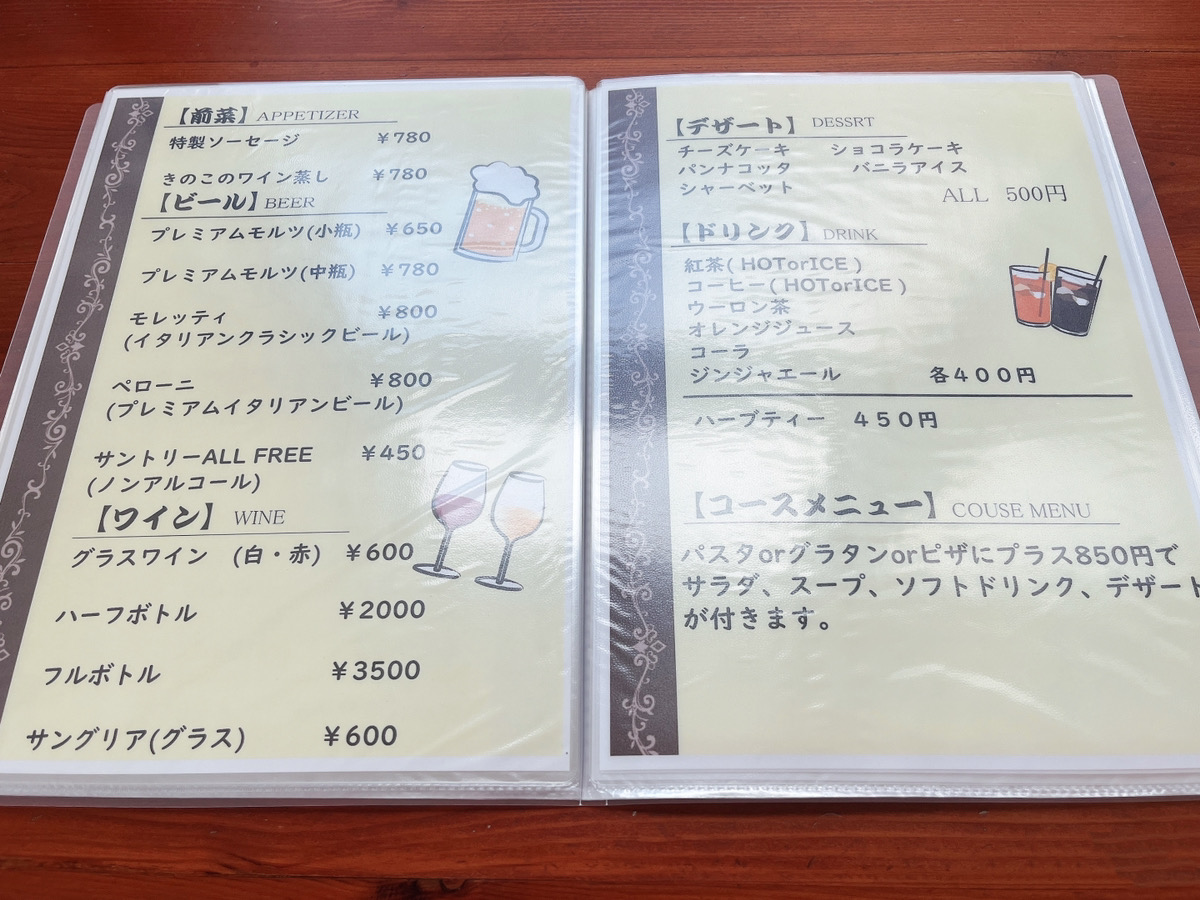 【前菜】 APPETIZER
特製ソーセージ ￥780
きのこのワイン蒸し ￥780
【ビール】 BEER
プレミアムモルツ(小瓶) ￥650
プレミアムモルツ(中瓶) ￥780
モレッティ ￥800
(イタリアンクラシックビール)
ペローニ ￥800
(プレミアムイタリアンビール)
サントリーALL FREE ￥450
(ノンアルコール)
【ワイン】 WINE
グラスワイン (白・赤) ￥600
ハーフボトル ￥2000
フルボトル ￥3500
サングリア(グラス) ￥600
【デザート】 DESSRT
チーズケーキ ショコラケーキ
パンナコッタ バニラアイス
シャーベット
ALL 500円
【ドリンク】 DRINK
紅茶( HOTorICE )
コーヒー( HOTorICE )
ウーロン茶
オレンジジュース
コーラ
ジンジャエール 各４００円
ハーブティー ４５０円
【コースメニュー】 COUSE MENU
パスタorグラタンorピザにプラス850円で
サラダ、スープ、ソフトドリンク、デザート
が付きます。